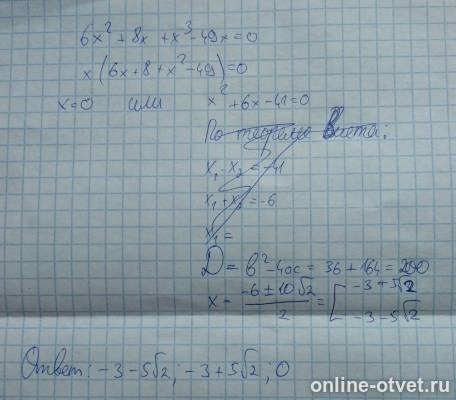 6x² + 8x + x³ - 49x = 0
x(6x + 8 + x² - 49) = 0
x = 0 или x² + 6x - 41 = 0
По теореме Виета:
x₁ · x₂ = -41
x₁ + x₂ = -6
x₁ =
D = b² - 4ac = 36 + 164 = 200
x = (-6 ± 10√2)/2 = [ -3 + 5√2
-3 - 5√2
Ответ: -3 - 5√2; -3 + 5√2; 0
online-otvet.ru